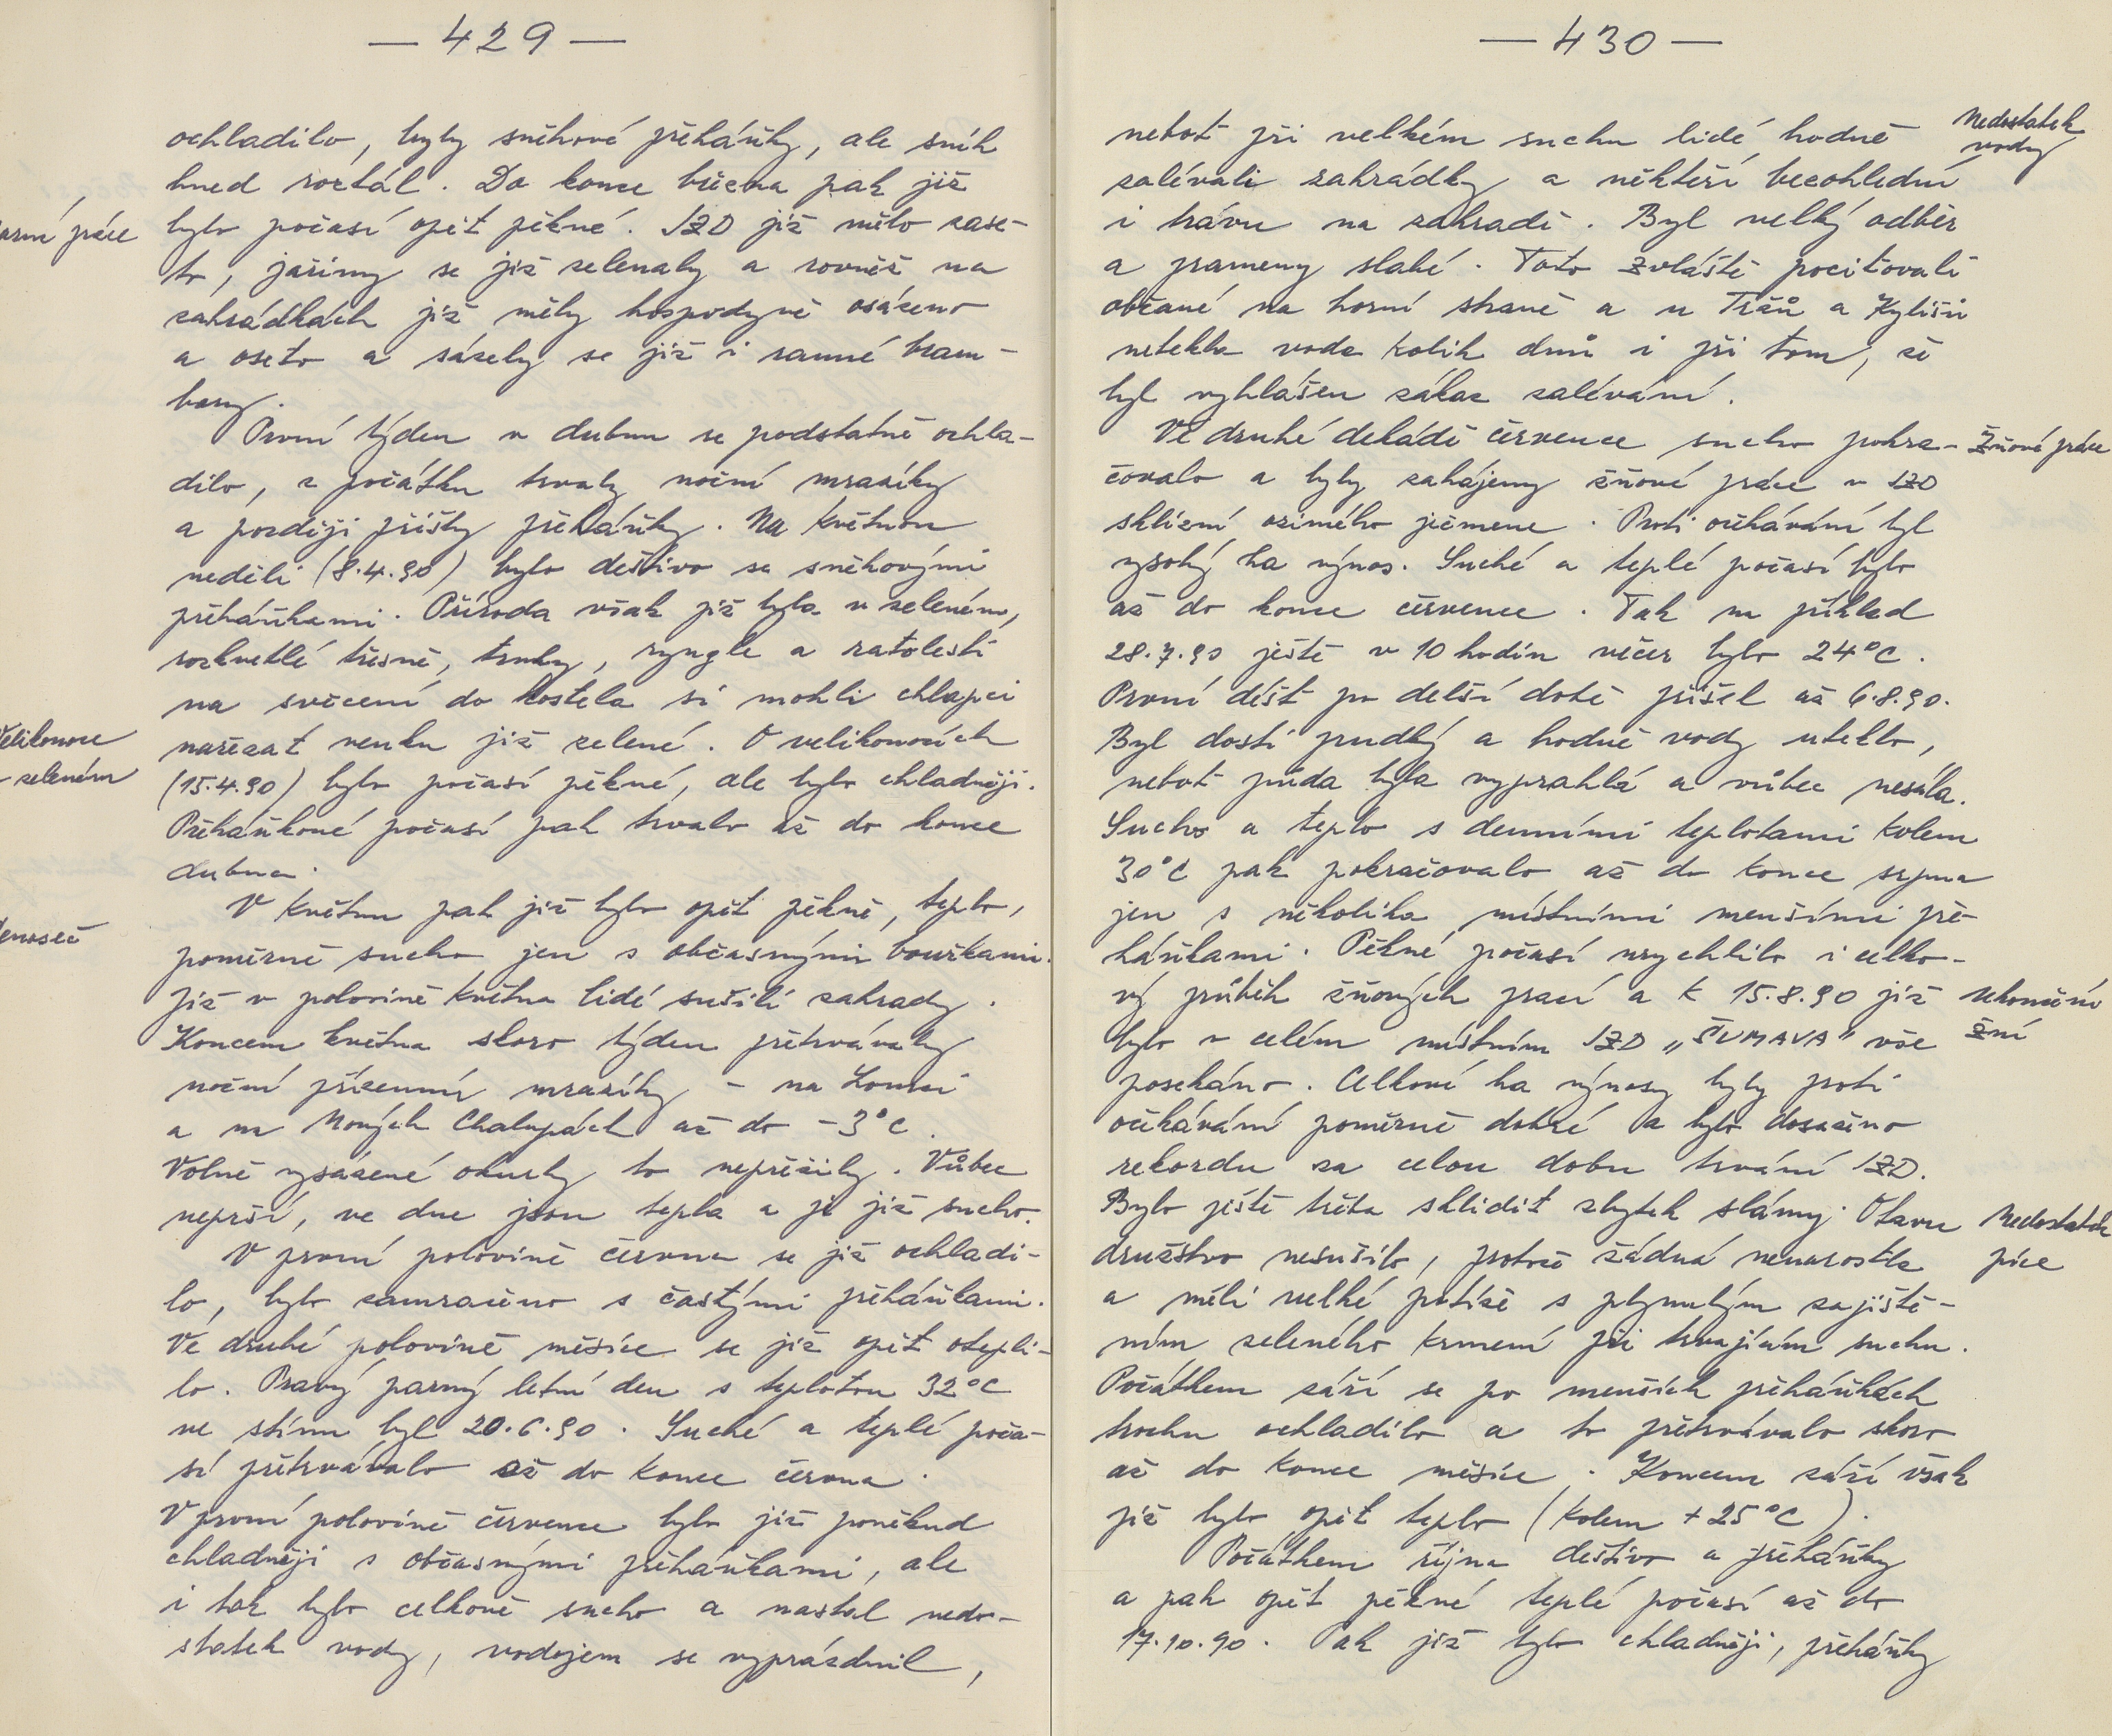 — 429 —
ochladilo, byly sněhové přeháňky, ale sníh
hned roztál. Do konce března pak již
jarní práce
bylo počasí opět pěkné. JZD již mělo zase-
to, jařiny se již zelenaly a rovněž na
zahrádkách již měly hospodyně osázeno
a oseto a sázely se již i ranné bram-
bory.
První týden v dubnu se podstatně ochla-
dilo, z počátku trvaly noční mrazíky
a později přišly přeháňky. Na květnou
neděli (8.4.90) bylo deštivo se sněhovými
přeháňkami. Příroda však již byla v zeleném,
rozkvetlé třešně, trnky, ryngle a ratolesti
na svěcení do kostela si mohli chlapci
Velikonoce
v zeleném
nařezat venku již zelené. O velikonocích
(15.4.90) bylo počasí pěkné, ale bylo chladněji.
Přeháňkové počasí pak trvalo až do konce
dubna.
V květnu pak již bylo opět pěkně, teplo,
senoseč
poměrně sucho jen s občasnými bouřkami.
Již v polovině května lidé sušili zahrady.
Koncem května skoro týden přetrvávaly
noční přízemní mrazíky – na Lomci
a na Nových Chalupách až do -3°C.
Volně vysázené okurky to nepřežily. Vůbec
neprší, ve dne jsou tepla a je již sucho.
V první polovině června se již ochladi-
lo, bylo zamračeno s častými přeháňkami.
Ve druhé polovině měsíce se již opět otepli-
lo. Pravý parný letní den s teplotou 32°C
ve stínu byl 20.6.90. Suché a teplé poča-
sí přetrvávalo až do konce června.
V první polovině července bylo již poněkud
chladněji s občasnými přeháňkami, ale
i tak bylo celkově sucho a nastal nedo-
statek vody, vodojem se vyprázdnil,
— 430 —
neboť při velkém suchu lidé hodně
Nedostatek
vody
zalévali zahrádky a někteří bezohlední
i trávu na zahradě. Byl velký odběr
a prameny slabé. Toto zvláště pociťovali
občané na horní straně a u Tržů a Kyliánů
netekla voda kolik dnů i při tom, že
byl vyhlášen zákaz zalévání.
Ve druhé dekádě července sucho pokra-
Žňové práce
čovalo a byly zahájeny žňové práce v JZD
sklizní ozimého ječmene. Proti očekávání byl
vysoký ha výnos. Suché a teplé počasí bylo
až do konce července. Tak na příklad
28.7.90 ještě v 10 hodin večer bylo 24°C.
První déšť po delší době přišel až 6.8.90.
Byl dosti prudký a hodně vody uteklo,
neboť půda byla vyprahlá a vůbec nesála.
Sucho a teplo s denními teplotami kolem
30°C pak pokračovalo až do konce srpna
jen s několika místními menšími pře-
háňkami. Pěkné počasí urychlilo i celko-
vý průběh žňových prací a k 15.8.90 již
Ukončení
žní
bylo v celém místním JZD „ŠUMAVA“ vše
posekáno. Celkové ha výnosy byly proti
očekávání poměrně dobré a bylo dosaženo
rekordu za celou dobu trvání JZD.
Bylo ještě třeba sklidit zbytek slámy. Otavu
Nedostatek
píce
družstvo nesušilo, protože žádná nenarostla
a měli velké potíže s plynulým zajiště-
ním zeleného krmení při trvajícím suchu.
Počátkem září se po menších přeháňkách
trochu ochladilo a to přetrvávalo skoro
až do konce měsíce. Koncem září však
již bylo opět teplo (kolem +25°C).
Počátkem října deštivo a přeháňky
a pak opět pěkné teplé počasí až do
17.10.90. Pak již bylo chladněji, přeháňky